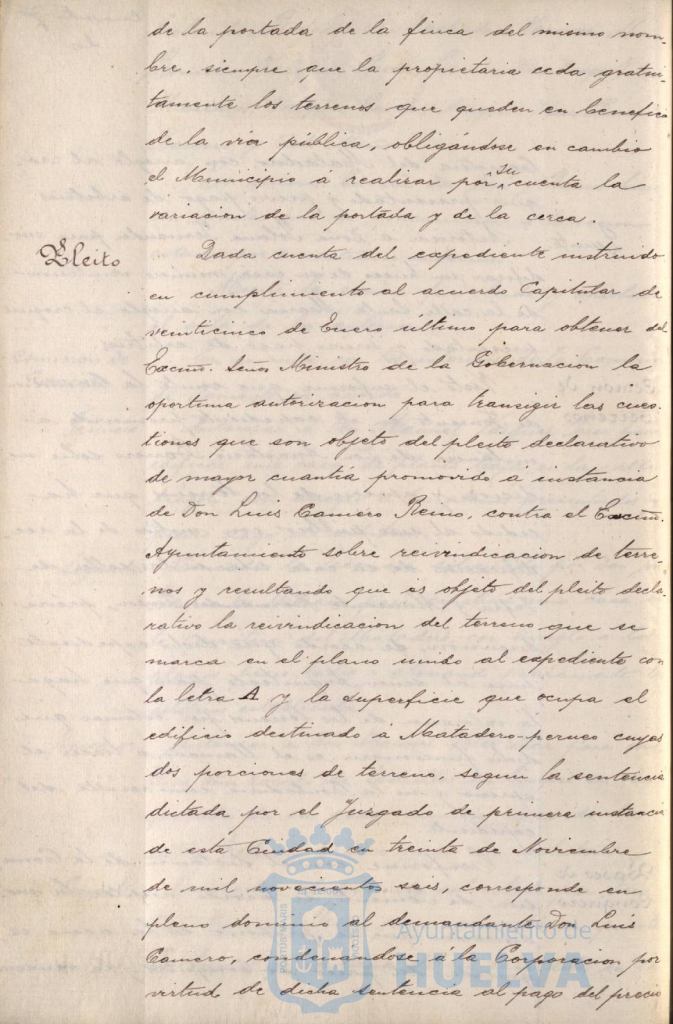 de la portada de la finca del mismo nom-
bre, siempre que la propietaria ceda gratui-
tamente los terrenos que queden en beneficio
de la via pública, obligándose en cambio
el Municipio á realizar por su cuenta la
variacion de la portada y de la cerca.
Pleito
Dada cuenta del expediente instruido
en cumplimiento al acuerdo Capitular de
veinticinco de Enero último para obtener del
Excmo. Señor Ministro de la Gobernacion la
oportuna autorizacion para transigir las cues-
tiones que son objeto del pleito declarativo
de mayor cuantía promovido á instancia
de Don Luis Camero Reino, contra el Excmo.
Ayuntamiento sobre reivindicacion de terre-
nos y resultando que es objeto del pleito decla-
rativo la reivindicacion del terreno que se
marca en el plano unido al expediente con
la letra A y la superficie que ocupa el
edificio destinado á Matadero-perneo cuyas
dos porciones de terreno, segun la sentencia
dictada por el Juzgado de primera instancia
de esta Ciudad en treinta de Noviembre
de mil novecientos seis, corresponde en
pleno dominio al demandante Don Luis
Camero, condenandose á la Corporacion por
virtud de dicha sentencia al pago del precio
Ayuntamiento de
HUELVA